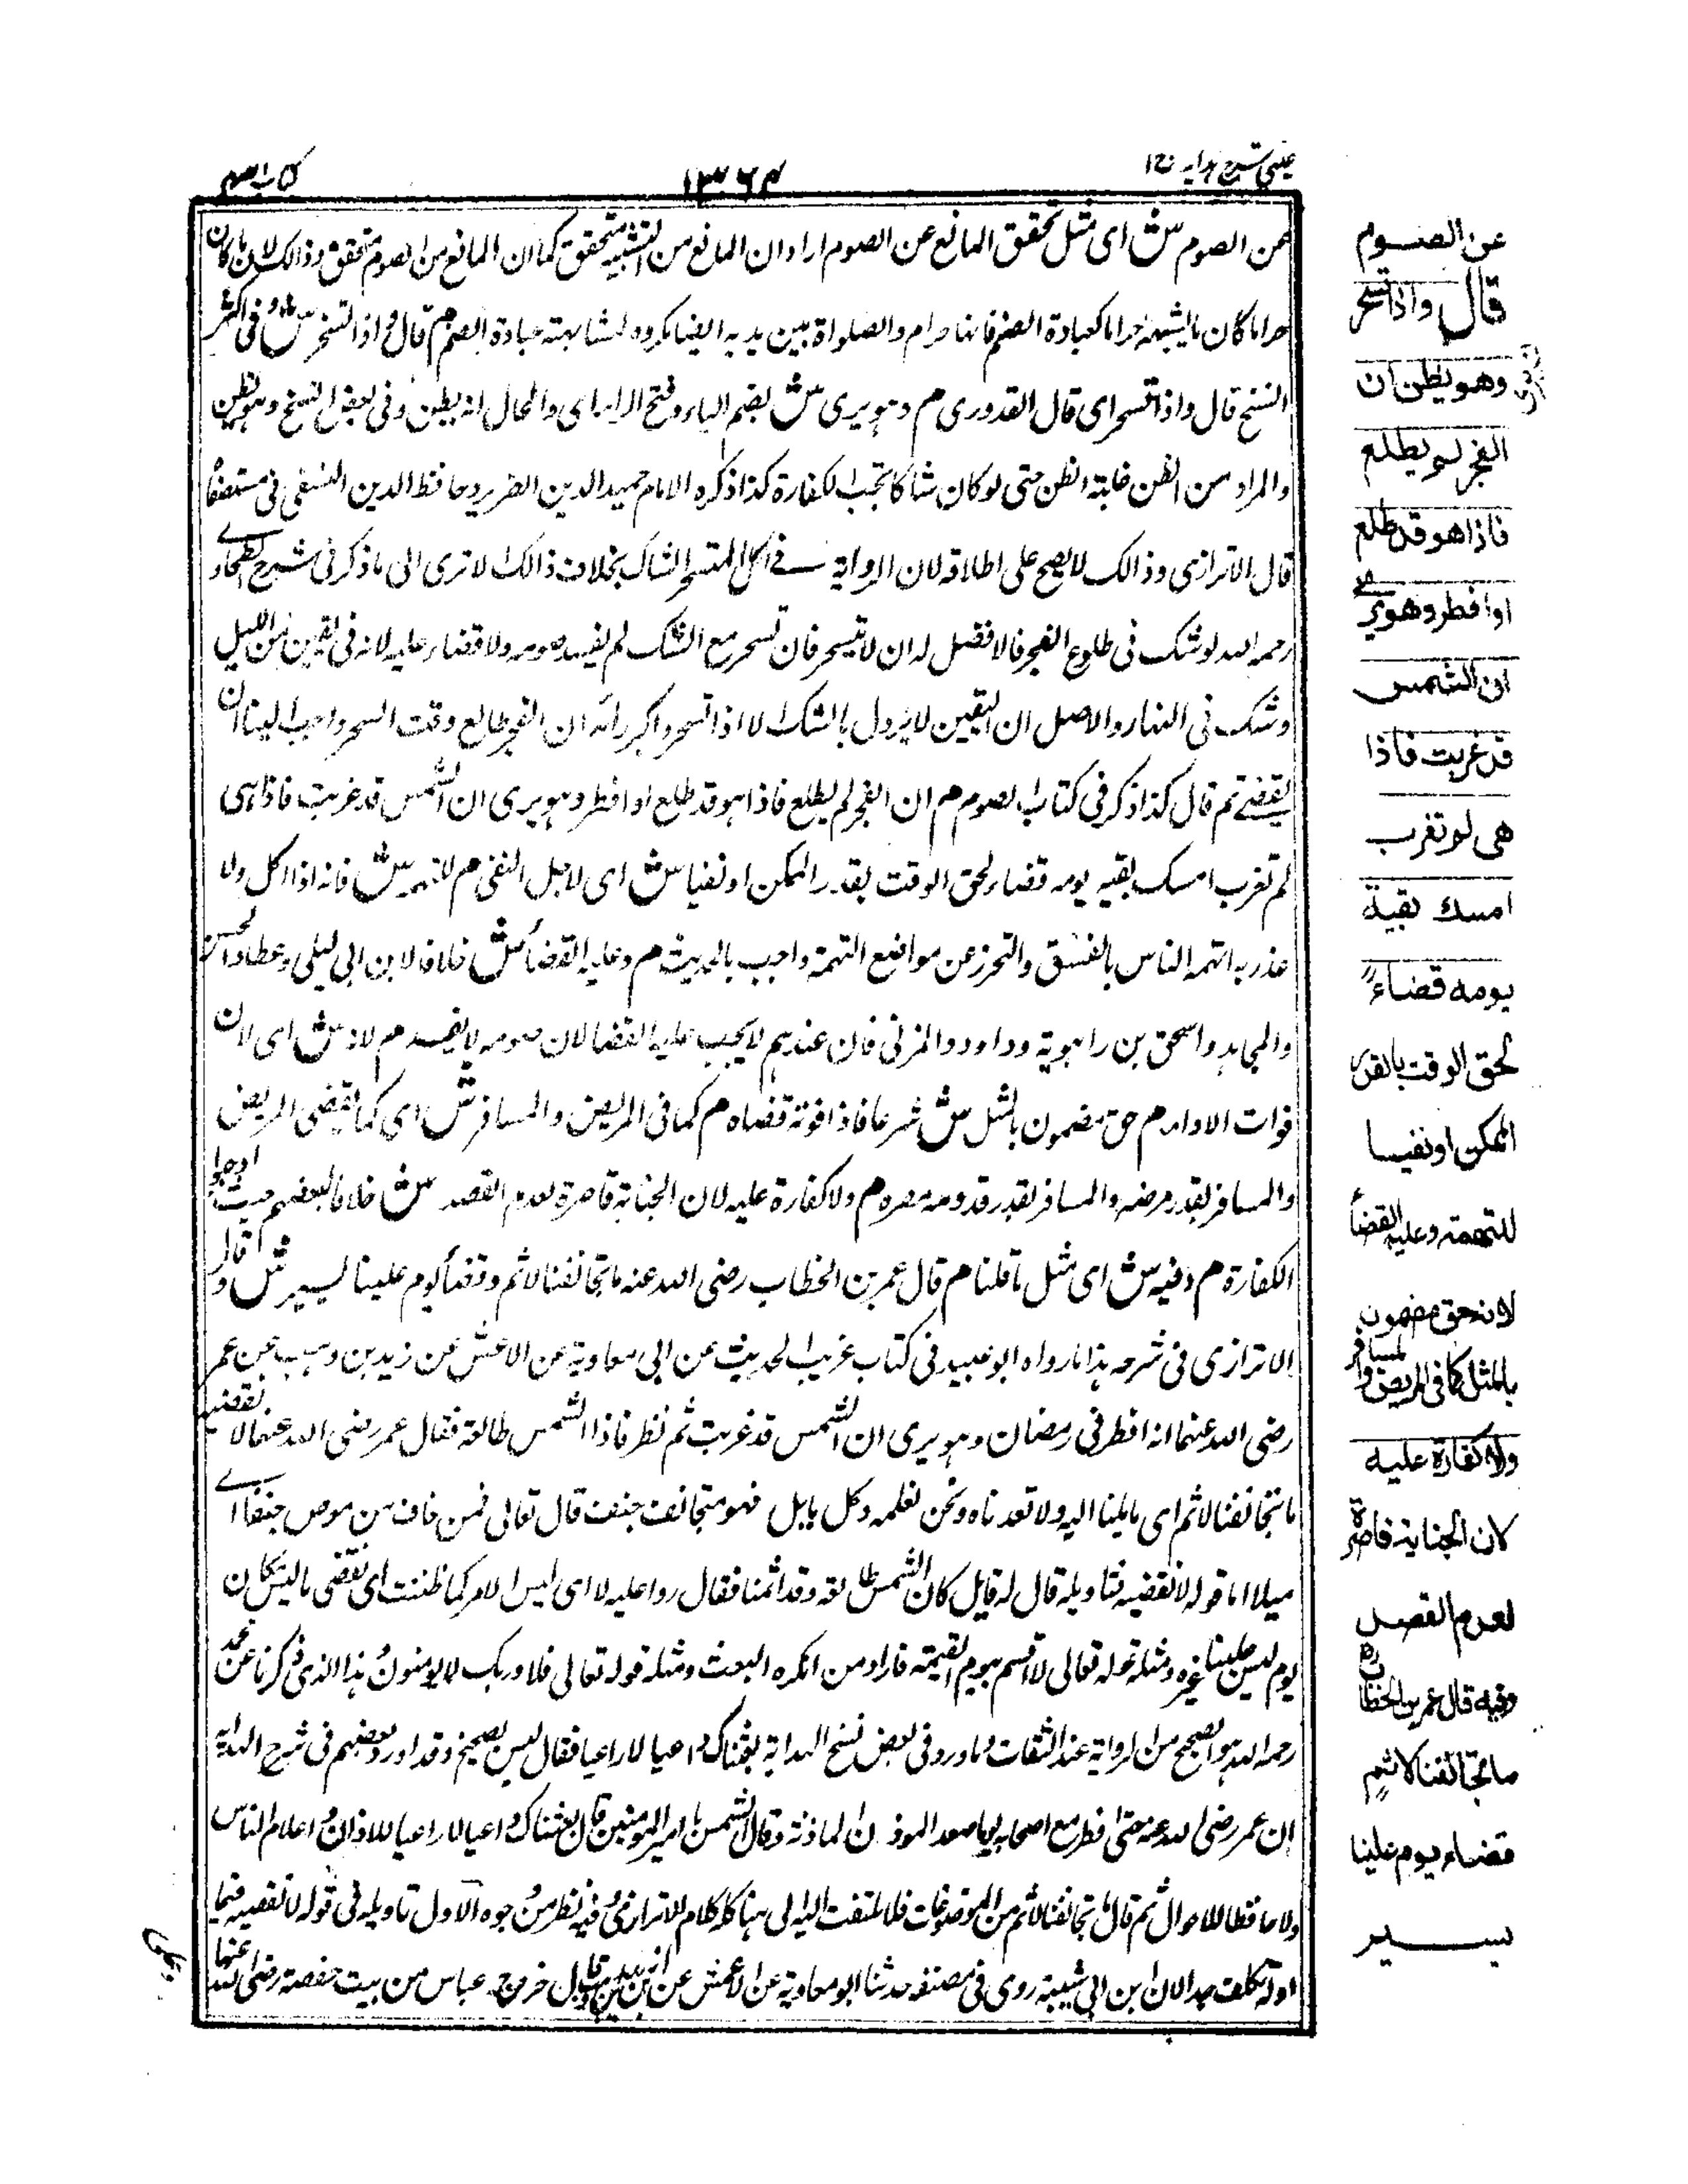 عینی شرح ہدایہ ج ۱
۱۳۶۴
کتاب الصوم
عن الصوم ش ای مثل تحقق المانع عن الصوم اراد ان المانع من التشبیہ متحقق کما ان المانع من الصوم متحقق وذالک لان ما کان
حراما کان ما یشبهہ حراما کعبادۃ الصنم فانہا حرام والصلواۃ بین یدیہ ایضا مکروہ لمشابہتہ عبادۃ الصنم م قال واذا تسحر ش وفی اکثر
النسخ قال واذا تسحر ای قال القدوری م وہو یری ش بضم الیاء وفتح الراء ای والحال انہ یظن وفی بعض النسخ وہو یظن
والمراد من الظن غلبتہ الظن حتی لو کان شاکا تجب الکفارۃ کذا ذکرہ الامام حمید الدین الضریر وحافظ الدین النسفی فی مستصفا
قال الاترازی وذالک لا یصح علی اطلاقہ لان الروایۃ فے اکل المتسحر الشاک بخلاف ذالک الا تری الی ما ذکر فی شرح الطحاوے
رحمہ اللہ لو شک فی طلوع الفجر فالافضل لہ ان لا یتسحر فان تسحر مع الشک لم یفسد صومہ ولا قضاء علیہ لانہ فی یقین من اللیل
وشک فی النہار والاصل ان الیقین لا یزول بالشک الا اذا تسحر واکبر رائہ ان الفجر طالع وقت السحر واحب الینا ان
یقضے ثم قال کذا ذکر فی کتاب الصوم م ان الفجر لم یطلع فاذا ہو قد طلع او افطر وہو یری ان الشمس قد غربت فاذا ہی
لم تغرب امسک بقیہ یومہ قضاء لحق الوقت بقدر الممکن او نفیا ش ای لاجل النفی م للتہمۃ ش فانہ اذا اکل ولا
عذر بہ اتہمہ الناس بالفسق والتحرز عن مواضع التہمۃ واجب بالحدیث م وعلیہ القضاء ش خلافا لابن ابی لیلی وعطاء والحسن
والمجاہد واسحق بن راہویۃ وداود والمزنی فان عندہم لا یجب علیہ القضا لان صومہ لا یفسد م لانہ ش ای لان
فوات الاداء م حق مضمون بالمثل ش شرعا فاذا فوتہ قضاہ م کما فی المریض والمسافر ش ای کما یقضی المریض
والمسافر بقدر مرضہ والمسافر بقدر قدومہ مصرہ م ولا کفارۃ علیہ لان الجنایۃ قاصرۃ لعدم القصد ش خلافا لبعضہم حیث اوجبوا
الکفارۃ م وفیہ ش ای مثل ما قلنا م قال عمر بن الخطاب رضی اللہ عنہ ما تجانفنا لاثم وقضاء یوم علینا یسیر ش وقال
الاترازی فی شرحہ ہذا ما رواہ ابو عبید فی کتاب غریب الحدیث عن ابی معاویۃ عن الاعمش عن زید بن وہب عن عمر
رضی اللہ عنہما انہ افطر فی رمضان وہو یری ان الشمس قد غربت ثم نظر فاذا الشمس طالعۃ فقال عمر رضی اللہ عنہ لا نقضیہ
ما تجانفنا لاثم ای ما ملنا الیہ ولا تعمدناہ ونحن نعلمہ وکل مایل فہو متجانف جنف قال تعالی فمن خاف من موص جنفا اے
میلا اما قولہ لا نقضیہ فتاویلہ قال لہ قایل کان الشمس طالعۃ وقد اثمنا فقال ردا علیہ لا ای لیس الامر کما ظننت ای نقضی ما لیس کان
یوم لیس علینا غیرہ ومثلہ قولہ تعالی لا اقسم بیوم القیمۃ فاراد من انکرہ البعث ومثلہ قولہ تعالی فلا وربک لا یومنون ہذا الذی ذکرنا عن محمد
رحمہ اللہ ہو الصحیح من الروایۃ عند الثقات وما ورد فی بعض نسخ الہدایۃ بعثناک داعیا لا راعیا فقال لیس بصحیح وقد اورد بعضہم فی شرح الہدایہ
ان عمر رضی اللہ عنہ حتی افطر مع اصحابہ یوما صعد الموذن الماذنۃ وقال الشمس یا امیر المومنین قال بعثناک داعیا لا راعیا للاذان واعلام الناس
ولا حافظا للاحوال ثم قال ما تجانفنا لاثم من الموضوعات فلا یلتفت الیہ الی ہنا کلہ کلام الاترازی وفیہ نظر من وجوہ الاول تاویلہ فی قولہ لا نقضیہ فیما
اولہ تکلف جدا لان ابن ابی شیبۃ روی فی مصنفہ حدثنا ابو معاویۃ عن الاعمش عن زید بن وہب قال خرج عباس من بیت حفصۃ رضی اللہ عنہا
عن الصوم
قال واذا تسحر
وهو یظن ان
الفجر لم یطلع
فاذا هو قد طلع
او افطر وهو یرے
ان الشمس
قد غربت فاذا
هی لم تغرب
امسك بقیة
یومه قضاءً
لحق الوقت بالقدر
الممکن او نفیا
للتهمة وعلیه القضاء
لانه حق مضمون
بالمثل کما فی المریض والمسافر
ولا کفارة علیه
لان الجنایة قاصرة
لعدم القصد
وفیه قال عمر بن الخطاب رض
ما تجانفنا لاثم
قضاء یوم علینا
یسیر